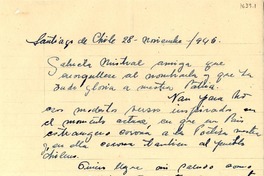 1637-1
Santiago de Chile 28- Noviembre-/946.
Gabriela Mistral amiga que
enorgullece al nombrarla y que ha
dado gloria a nuestra Patria.
Van para Ud
con modestos versos inspirados en
el momento actual en que un Rey
extrangero corona a la Poetisa nuestra
y en ella corona tambien al pueblo
chileno.
Quiera llegue mi saludo como